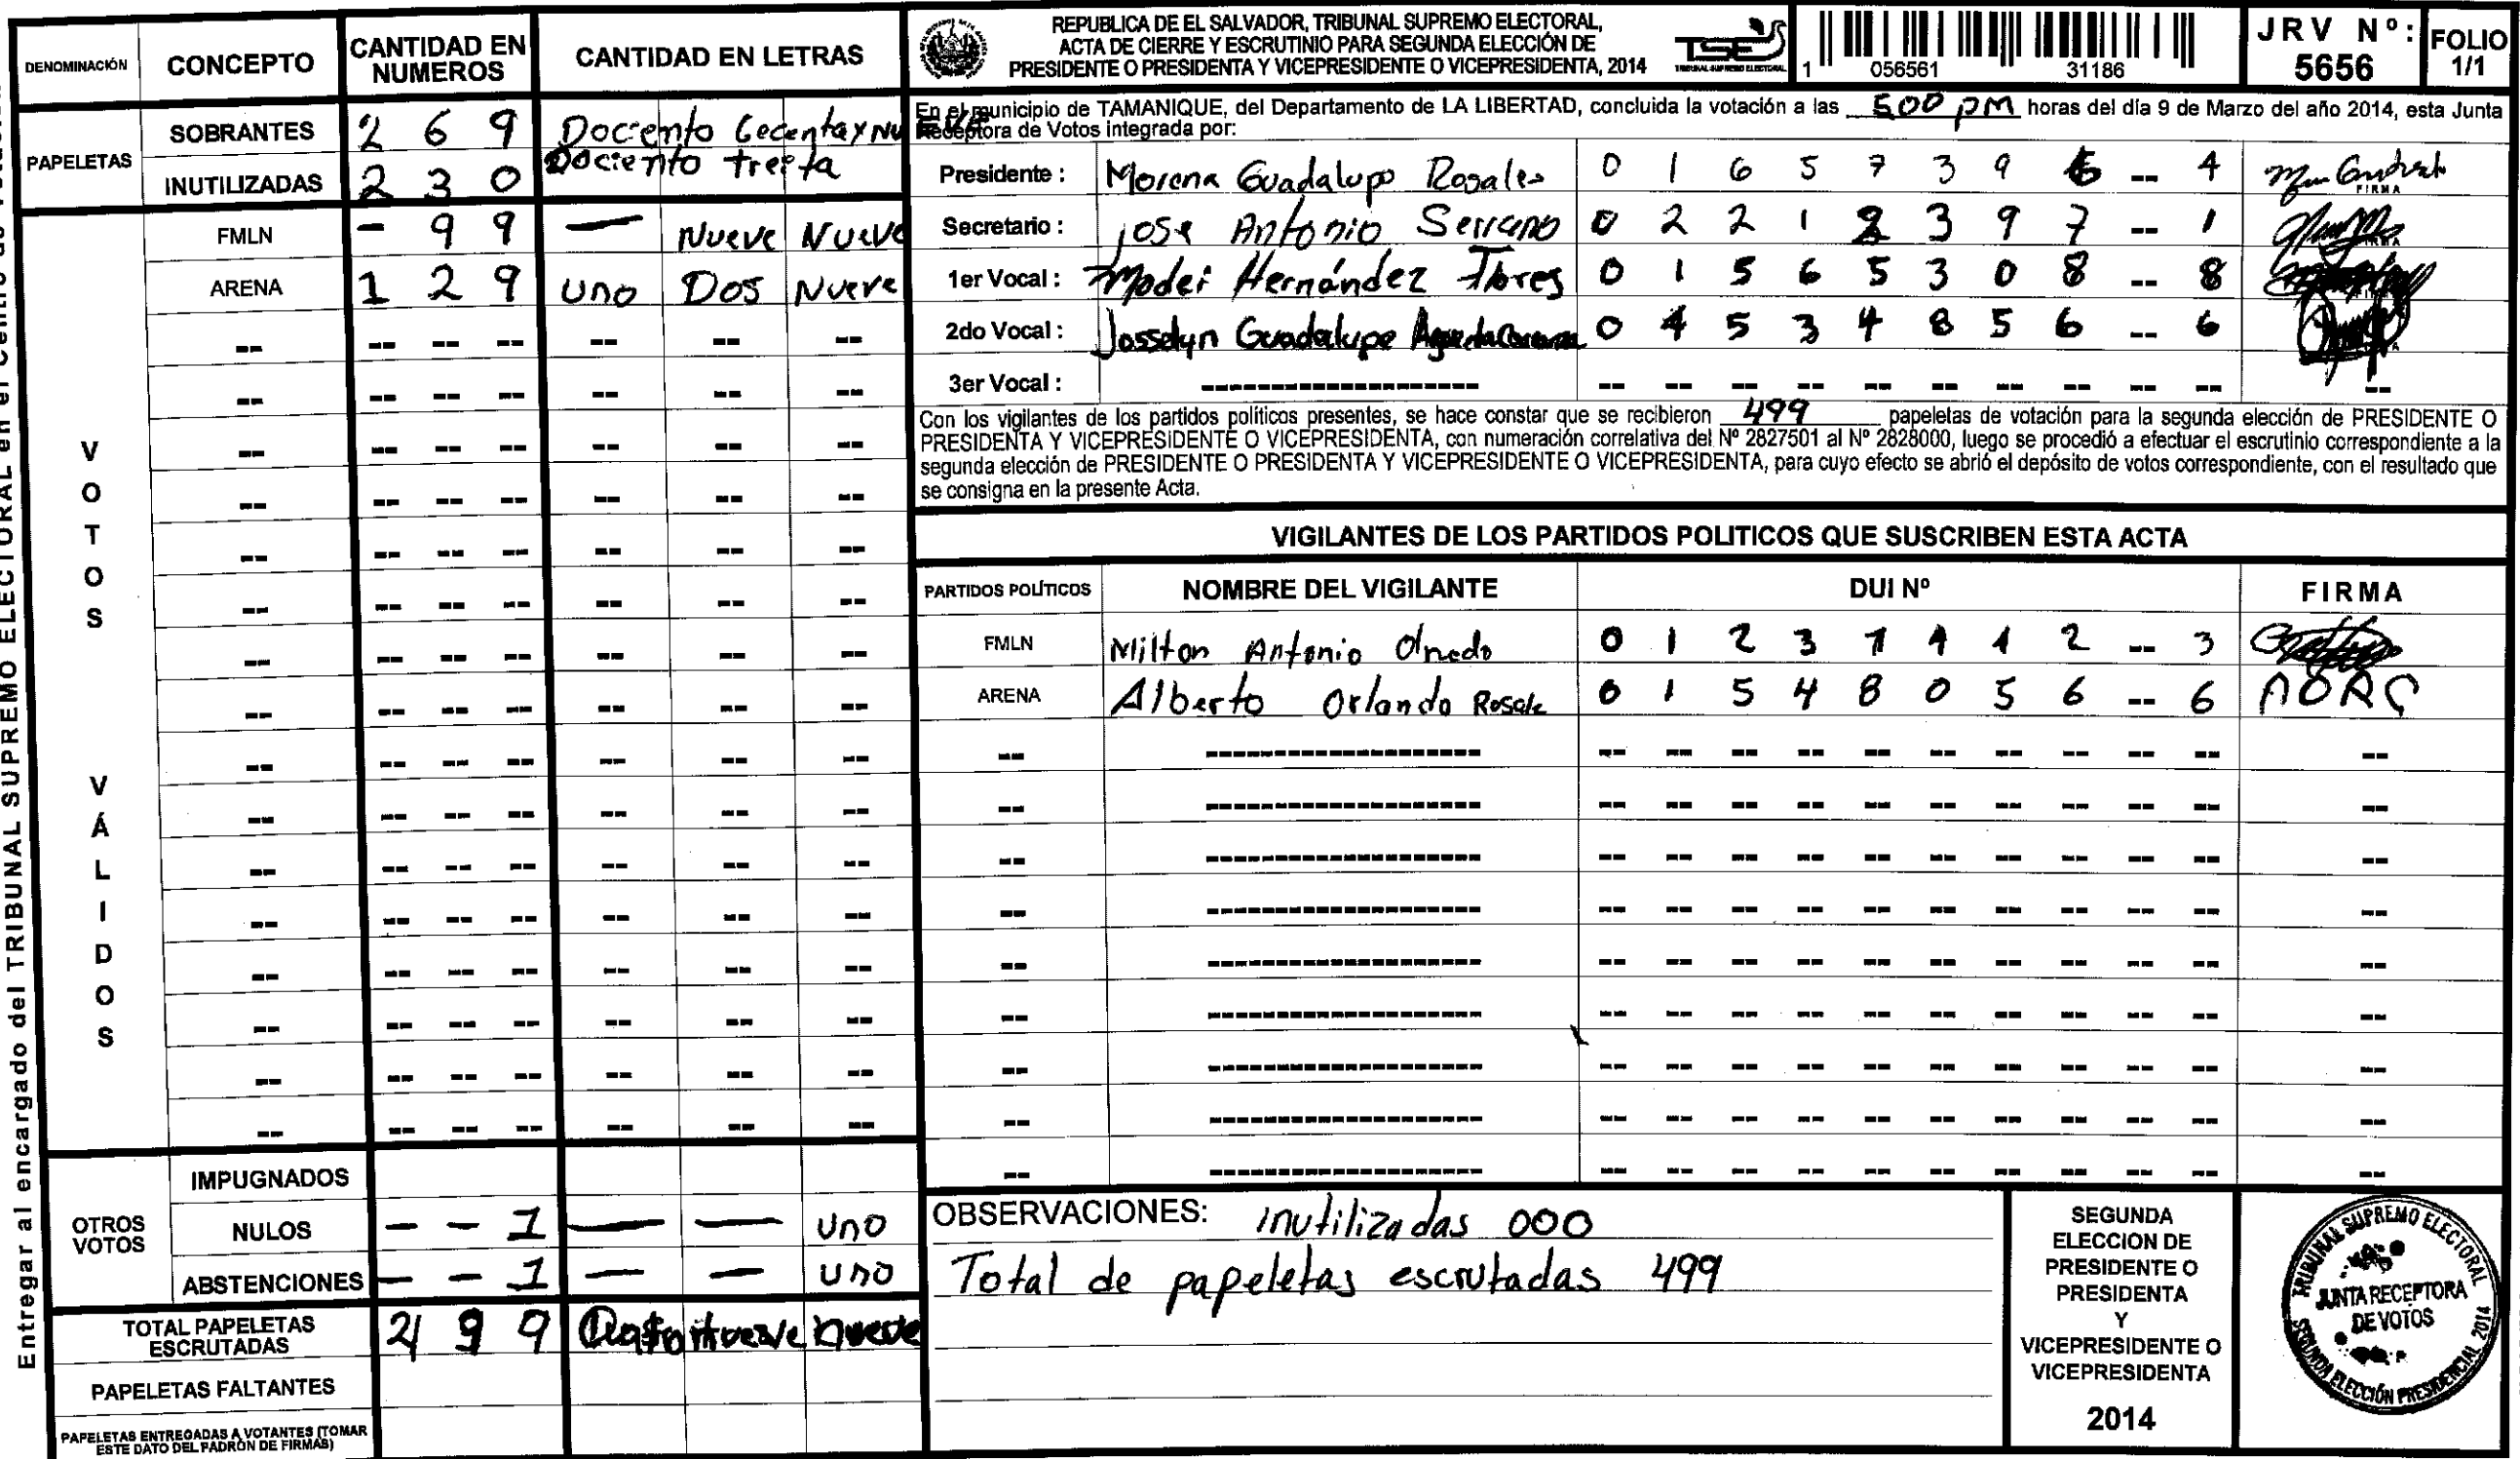 DENOMINACIÓN CONCEPTO CANTIDAD EN NUMEROS CANTIDAD EN LETRAS
PAPELETAS
SOBRANTES 2 6 9 Docento Cecenta y Nueve
INUTILIZADAS 2 3 0 Dociento treita
VOTOS VÁLIDOS
FMLN - 9 9 — Nueve Nueve
ARENA 1 2 9 uno Dos Nueve
OTROS VOTOS
IMPUGNADOS
NULOS — — 1 — — uno
ABSTENCIONES — — 1 — — uno
TOTAL PAPELETAS ESCRUTADAS 4 9 9 nueve
PAPELETAS FALTANTES
PAPELETAS ENTREGADAS A VOTANTES (TOMAR ESTE DATO DEL PADRÓN DE FIRMAS)
Entregar al encargado del TRIBUNAL SUPREMO ELECTORAL en el Centro de
REPUBLICA DE EL SALVADOR, TRIBUNAL SUPREMO ELECTORAL,
ACTA DE CIERRE Y ESCRUTINIO PARA SEGUNDA ELECCIÓN DE
PRESIDENTE O PRESIDENTA Y VICEPRESIDENTE O VICEPRESIDENTA, 2014
TSE
TRIBUNAL SUPREMO ELECTORAL
1 056561 31186
JRV Nº: 5656
FOLIO 1/1
En el municipio de TAMANIQUE, del Departamento de LA LIBERTAD, concluida la votación a las 500 pm horas del día 9 de Marzo del año 2014, esta Junta
Receptora de Votos integrada por:
Presidente : Morena Guadalupo Rosales 0 1 6 5 7 3 9 6 -- 4 FIRMA
Secretario : jose Antonio Serrano 0 2 2 1 2 3 9 7 -- 1
1er Vocal : Modei Hernández Flores 0 1 5 6 5 3 0 8 -- 8
2do Vocal : Josselyn Guadalupe 0 4 5 3 4 8 5 6 -- 6
3er Vocal :
Con los vigilantes de los partidos políticos presentes, se hace constar que se recibieron 499 papeletas de votación para la segunda elección de PRESIDENTE O
PRESIDENTA Y VICEPRESIDENTE O VICEPRESIDENTA, con numeración correlativa del Nº 2827501 al Nº 2828000, luego se procedió a efectuar el escrutinio correspondiente a la
segunda elección de PRESIDENTE O PRESIDENTA Y VICEPRESIDENTE O VICEPRESIDENTA, para cuyo efecto se abrió el depósito de votos correspondiente, con el resultado que
se consigna en la presente Acta.
VIGILANTES DE LOS PARTIDOS POLITICOS QUE SUSCRIBEN ESTA ACTA
PARTIDOS POLÍTICOS NOMBRE DEL VIGILANTE DUI Nº FIRMA
FMLN Milton Antonio 0 1 2 3 7 4 1 2 -- 3
ARENA Alberto Orlando Rosale 0 1 5 4 8 0 5 6 -- 6 AORC
OBSERVACIONES: inutilizadas 000
Total de papeletas escrutadas 499
SEGUNDA
ELECCION DE
PRESIDENTE O
PRESIDENTA
Y
VICEPRESIDENTE O
VICEPRESIDENTA
2014
TRIBUNAL SUPREMO ELECTORAL
JUNTA RECEPTORA
DE VOTOS
SEGUNDA ELECCIÓN PRESIDENCIAL 2014